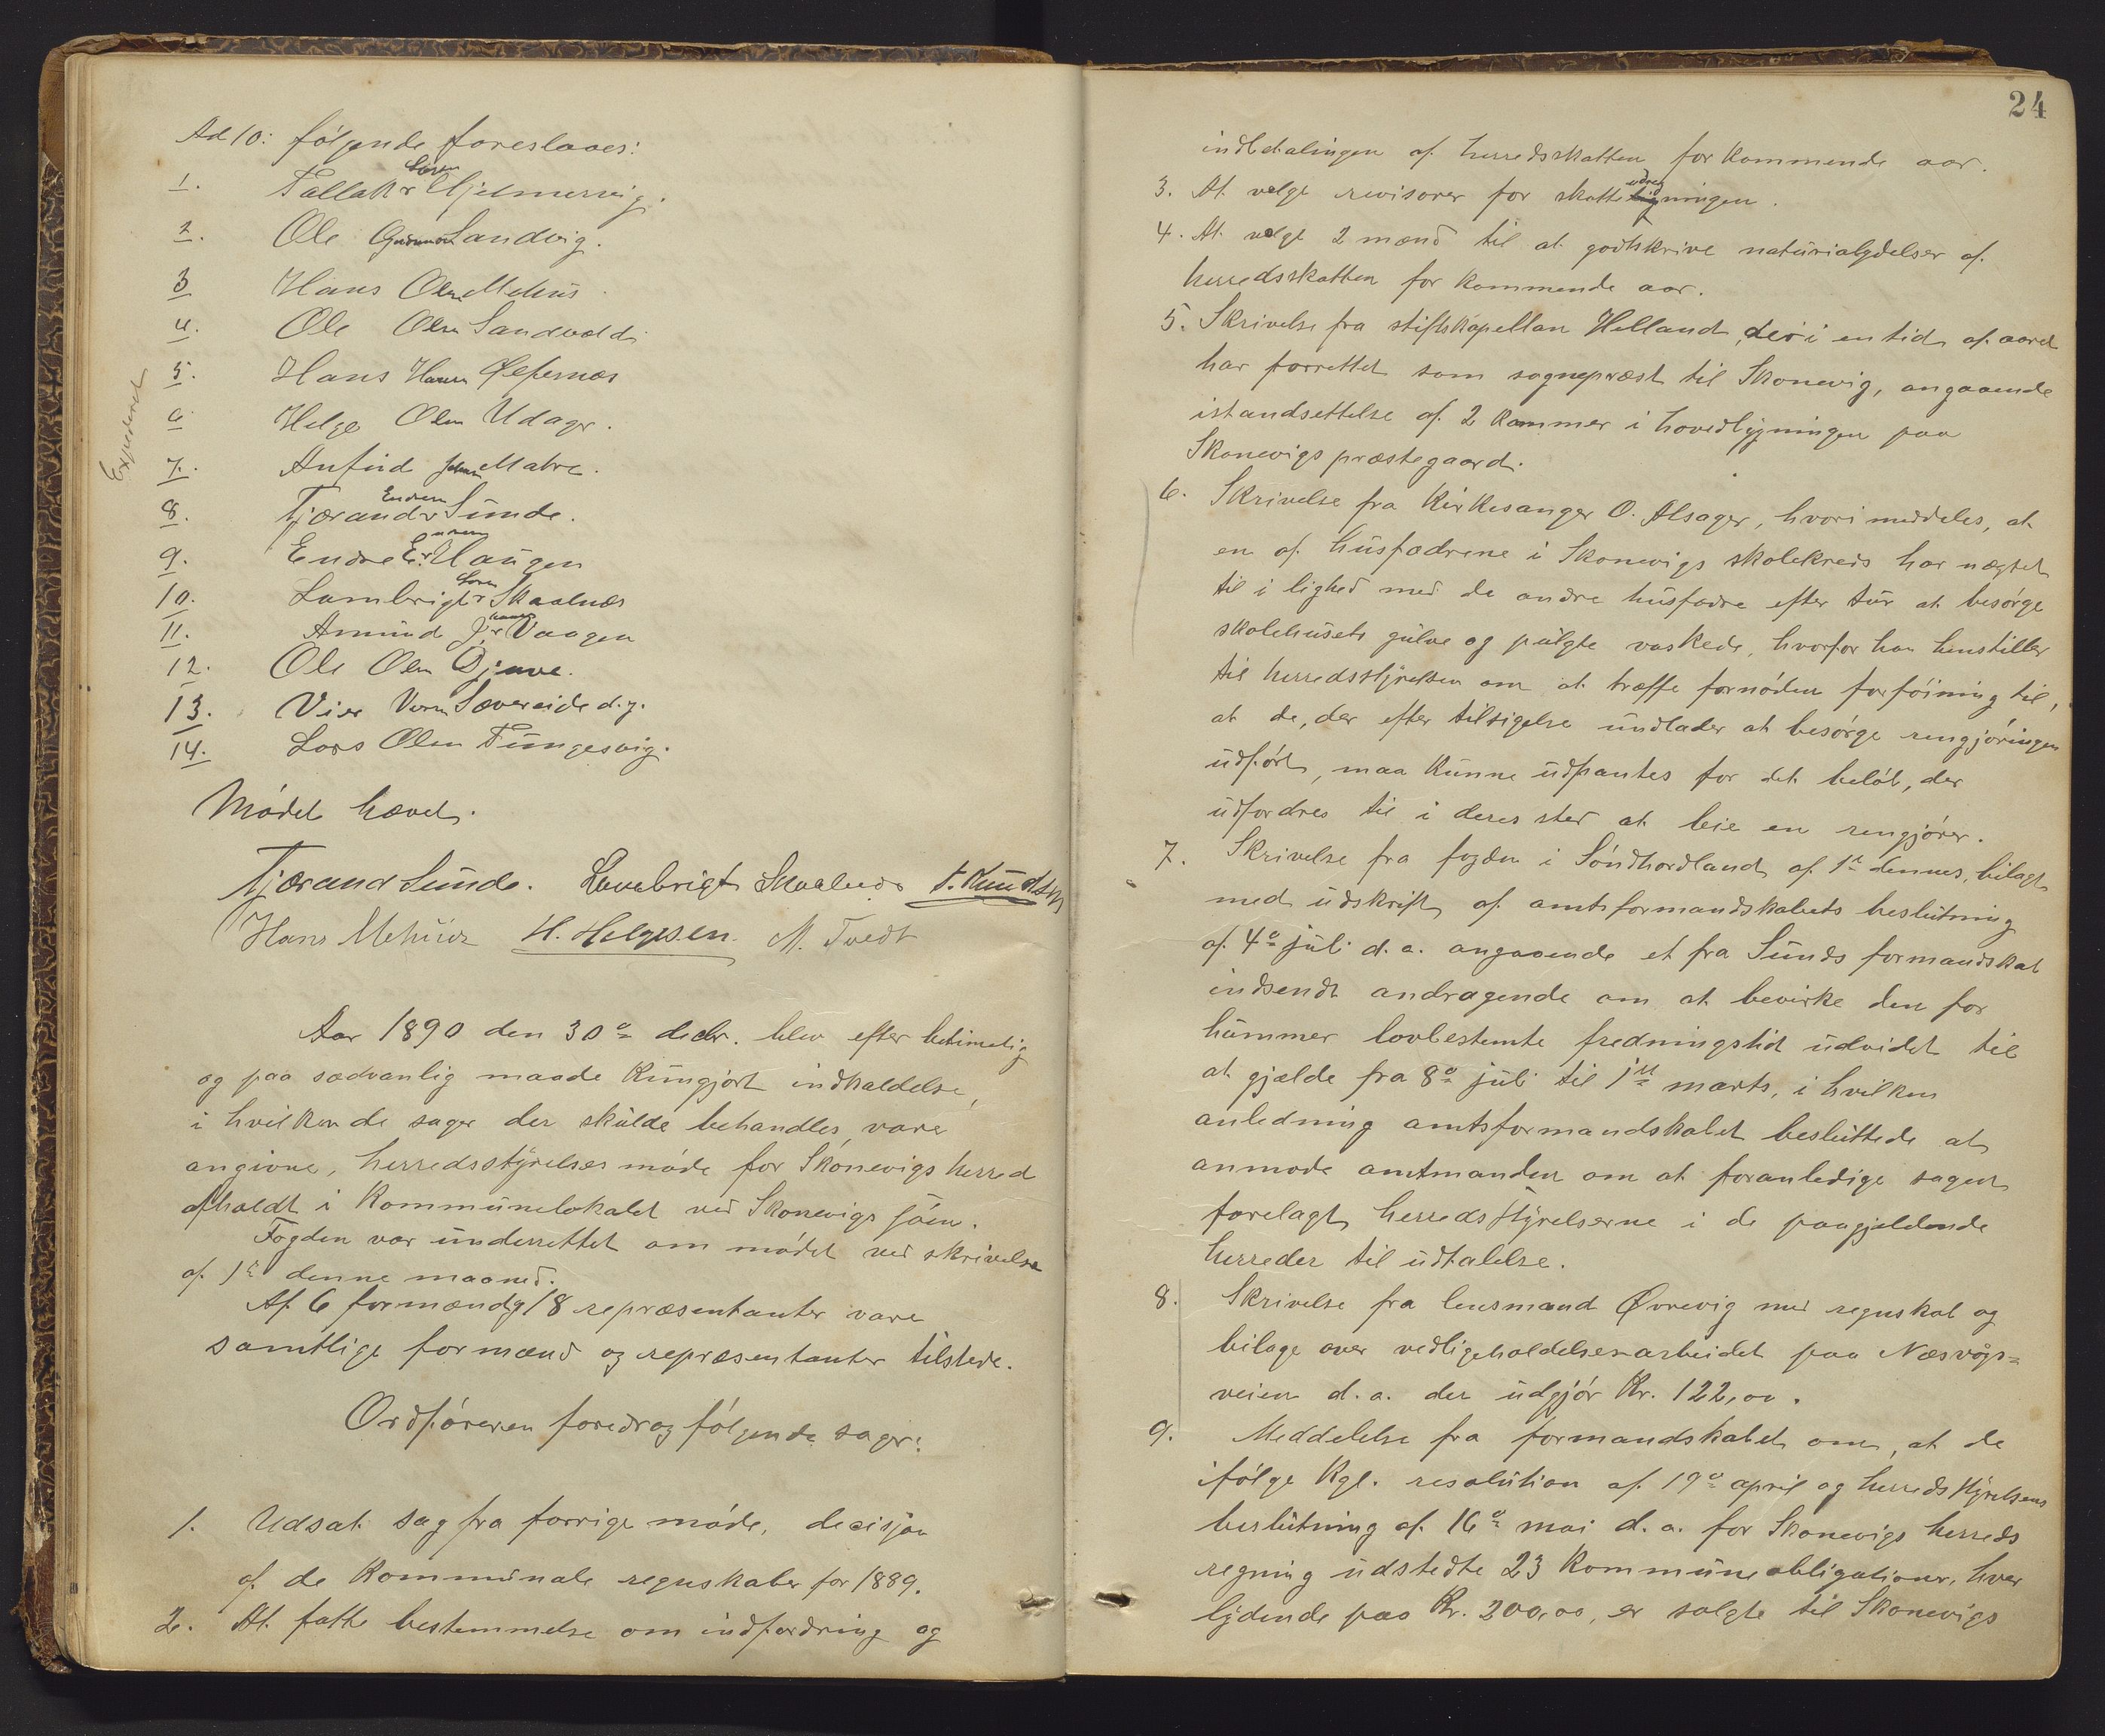 Ad 10: følgende foreslaaes:
1. Tallak Larsen Hjelmervig.
2. Ole Gudmundsen Sandvig.
3 Hans Olsen Mehus.
4. Ole Olsen Sandvold.
5. Hans Hansen
6 Helge Olsen Udager.
Expederet
7. Anfind Johnsen Matre.
8. Tjærand Endresen Sunde.
9. Endre Endresen Haugen
10. Lambrigt Larsen Skaalnæs
11. Amund Vaagen
12. Ole Olsen Djuve.
13. Vier Viersen Sævereide d.y.
14. Lars Olsen Tungesvig.
Mødet hævet.
Tjærand Sunde. Lambrigt Skaalnæs T. Knudsen
Hans Mehus H. Helgesen. M. Tvedt
Aar 1890 den 30te decbr. blev efter betimelig
og paa sædvanlig maade kungjort indkaldelse,
i hvilken de sager der skulde behandles, vare
angivne, herredsstyrelses møde for Skonevigs herred
afholdt i kommunelokalet ved Skonevigs søen.
Fogden var underrettet om mødet ved skrivelse
af 1ste denne maaned.
Af 6 formænd og 18 repræsentanter vare
samtlige formænd og repræsentanter tilstede.
Ordføreren foredrog følgende sager:
1. Udsat sag fra forrige møde, decisjon
af de kommunale regnskaber for 1889.
2. At fatte bestemmelse om indfordring og
24
indbetalingen af herredsskatten for kommende aar.
3. At velge revisorer for skatteudregningen.
4. At velge 2 mænd til at godtskrive naturialydelser af
herredsskatten for kommende aar.
5. Skrivelse fra stiftskapellan Helland, der i en tid af aaret
har forrettet som sognepræst til Skonevig, angaaende
istandsettelse af 2 kammer i hovedbygningen paa
Skonevigs præstegaard.
6. Skrivelse fra kirkesanger O. Alsager, hvori meddeles, at
en af husfædrene i Skonevigs skolekreds har nægtet
til i lighed med de andre husfædre efter tur at besørge
skolehusets gulve og pulgte vaskede, hvorfor han henstiller
til herredsstyrelsen om at træffe fornøden forføining til,
at de, der efter tilsigelse undlader at besørge rengjøringen
udført, maa kunne udpantes for det beløb, der
udfordres til i deres sted at leie en rengjører.
7. Skrivelse fra fogden i Søndhordland af 1ste dennes, bilagt
med udskrift af amtsformandskabets beslutning
af 4de juli d.a. angaaende et fra Sunds formandskab
indsendt andragende om at bevirke den for
hummer lovbestemte fredningstid udvidet til
at gjælde fra 8de juli til 1ste marts, i hvilken
anledning amtsformandskabet besluttede at
anmode amtmanden om at foranledige sagen
forelagt herredsstyrelserne i de paagjeldende
herreder til udtalelse.
8. Skrivelse fra lensmand Øvrevig med regnskab og
bilage over vedligeholdelsesarbeidet paa Næsvågs=
veien d.a. der udgjør Kr. 122,00.
9. Meddelelse fra formandskabet om, at de
ifølge kgl. resolution af 19de april og herredsstyrelsens
beslutning af 16de mai d.a. for Skonevigs herreds
regning udstedte 23 kommuneobligationer, hver
lydende paa Kr. 200,00, er solgte til Skonevigs